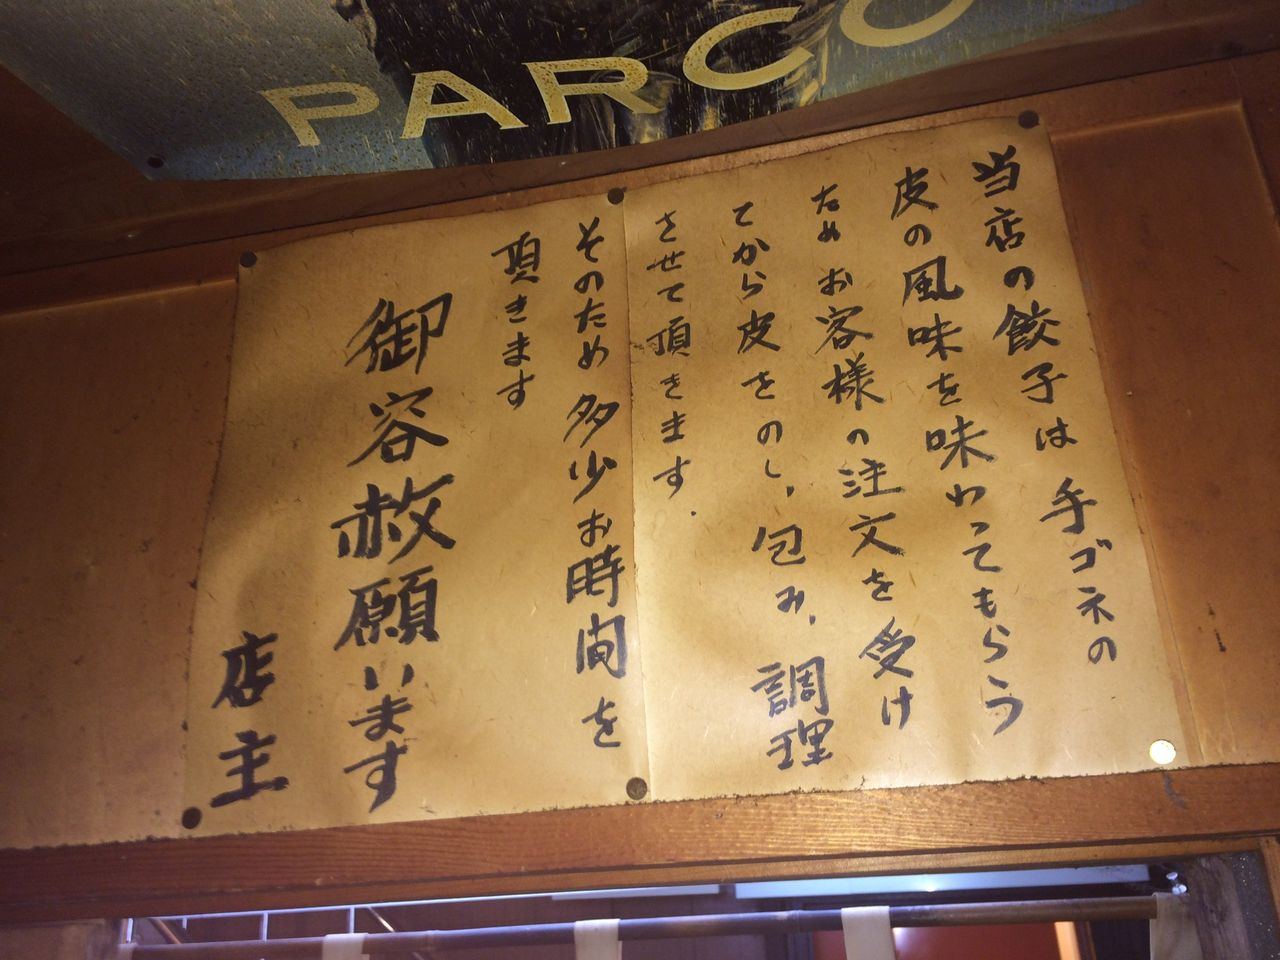 PARCO
当店の餃子は手ゴネの
皮の風味を味わってもらう
ためお客様の注文を受け
てから皮をのし、包み、調理
させて頂きます.
そのため多少お時間を
頂きます
御容赦願います
店主